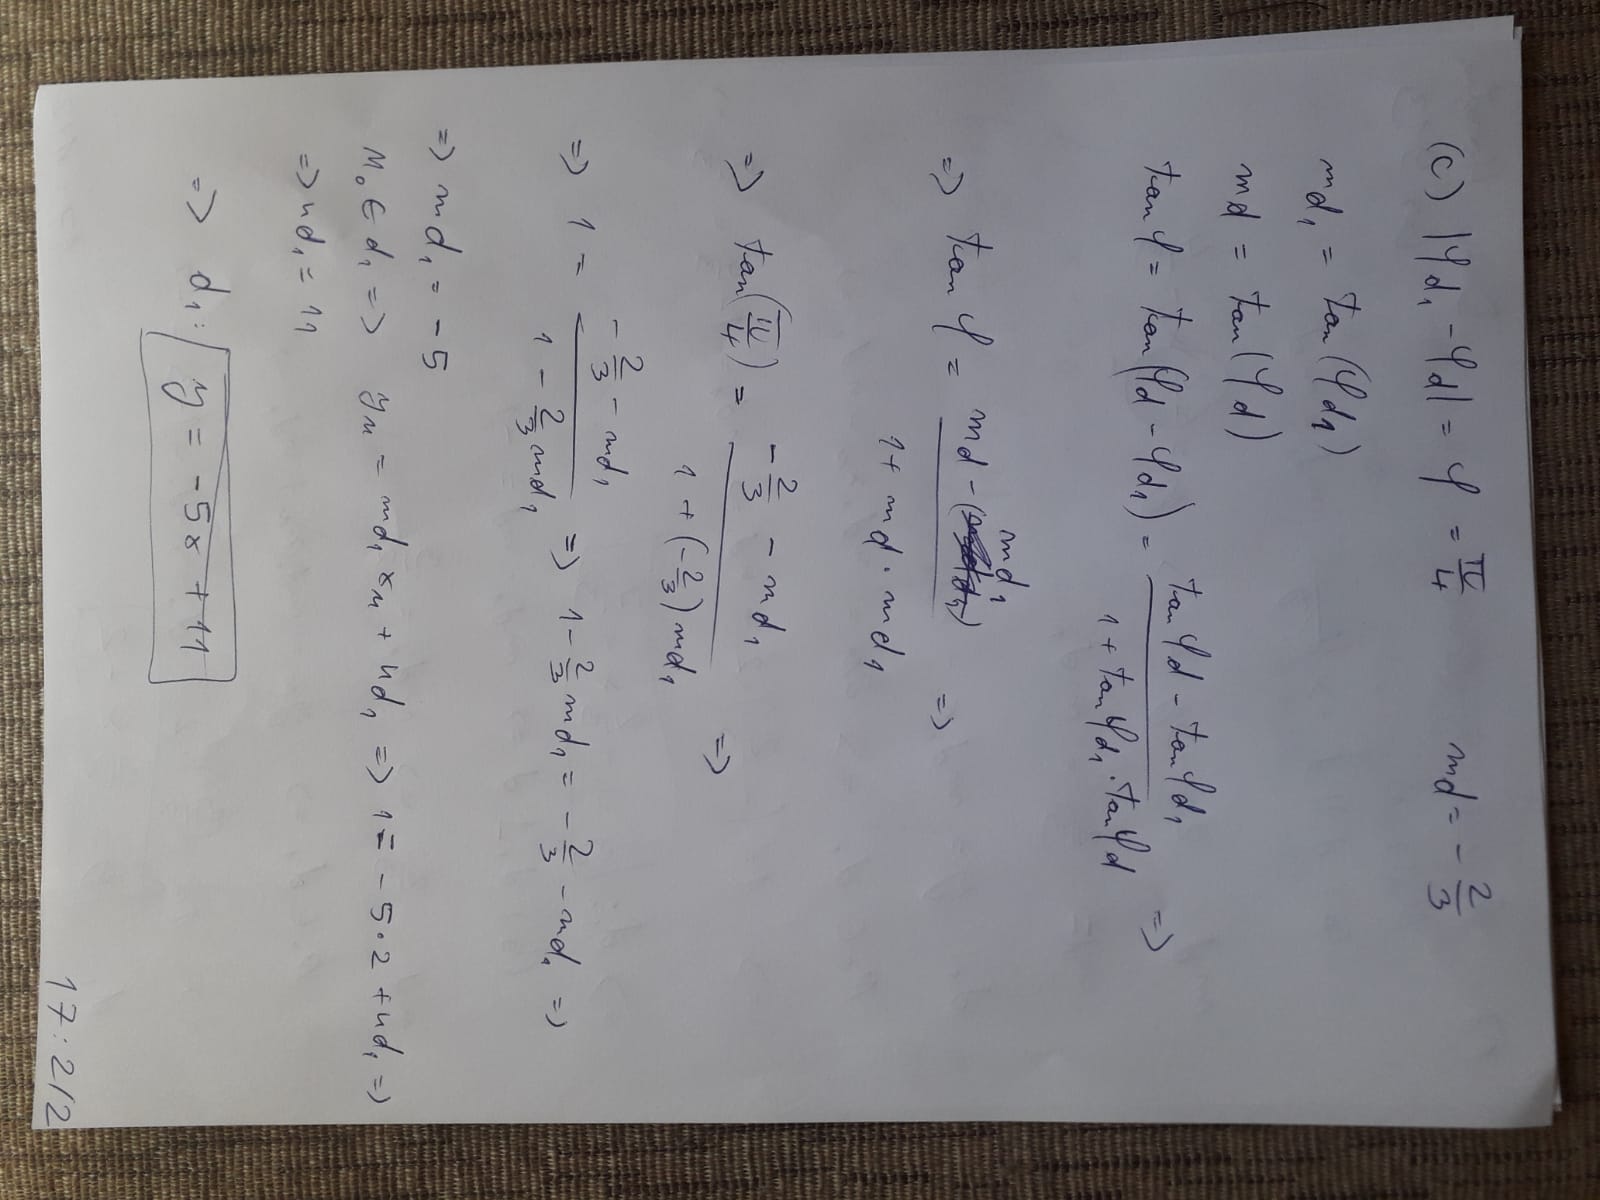 (c) |φd₁ - φd| = φ = π/4 md = - 2/3
md₁ = tan(φd₁)
md = tan(φd)
tan φ = tan(φd - φd₁) = (tan φd - tan φd₁)/(1 + tan φd₁ · tan φd) =>
=> tan φ = (md - (md₁))/(1 + md · md₁) =>
=> tan(π/4) = (-2/3 - md₁)/(1 + (-2/3) md₁) =>
=> 1 = (-2/3 - md₁)/(1 - 2/3 md₁) => 1 - 2/3 md₁ = -2/3 - md₁ =>
=> md₁ = -5
M₀ ∈ d₁ => yM = md₁ xM + nd₁ => 1 = -5·2 + nd₁ =>
=> nd₁ = 11
=> d₁: y = -5x + 11
17:2/2